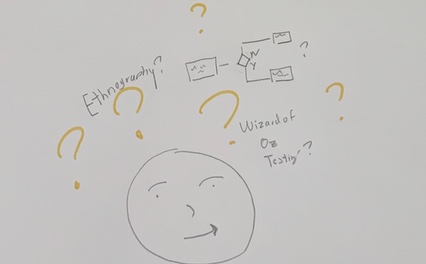 ?
Ethnography?
N
Y
?
? ? ? ?
Wizard of
Oz
Testing?